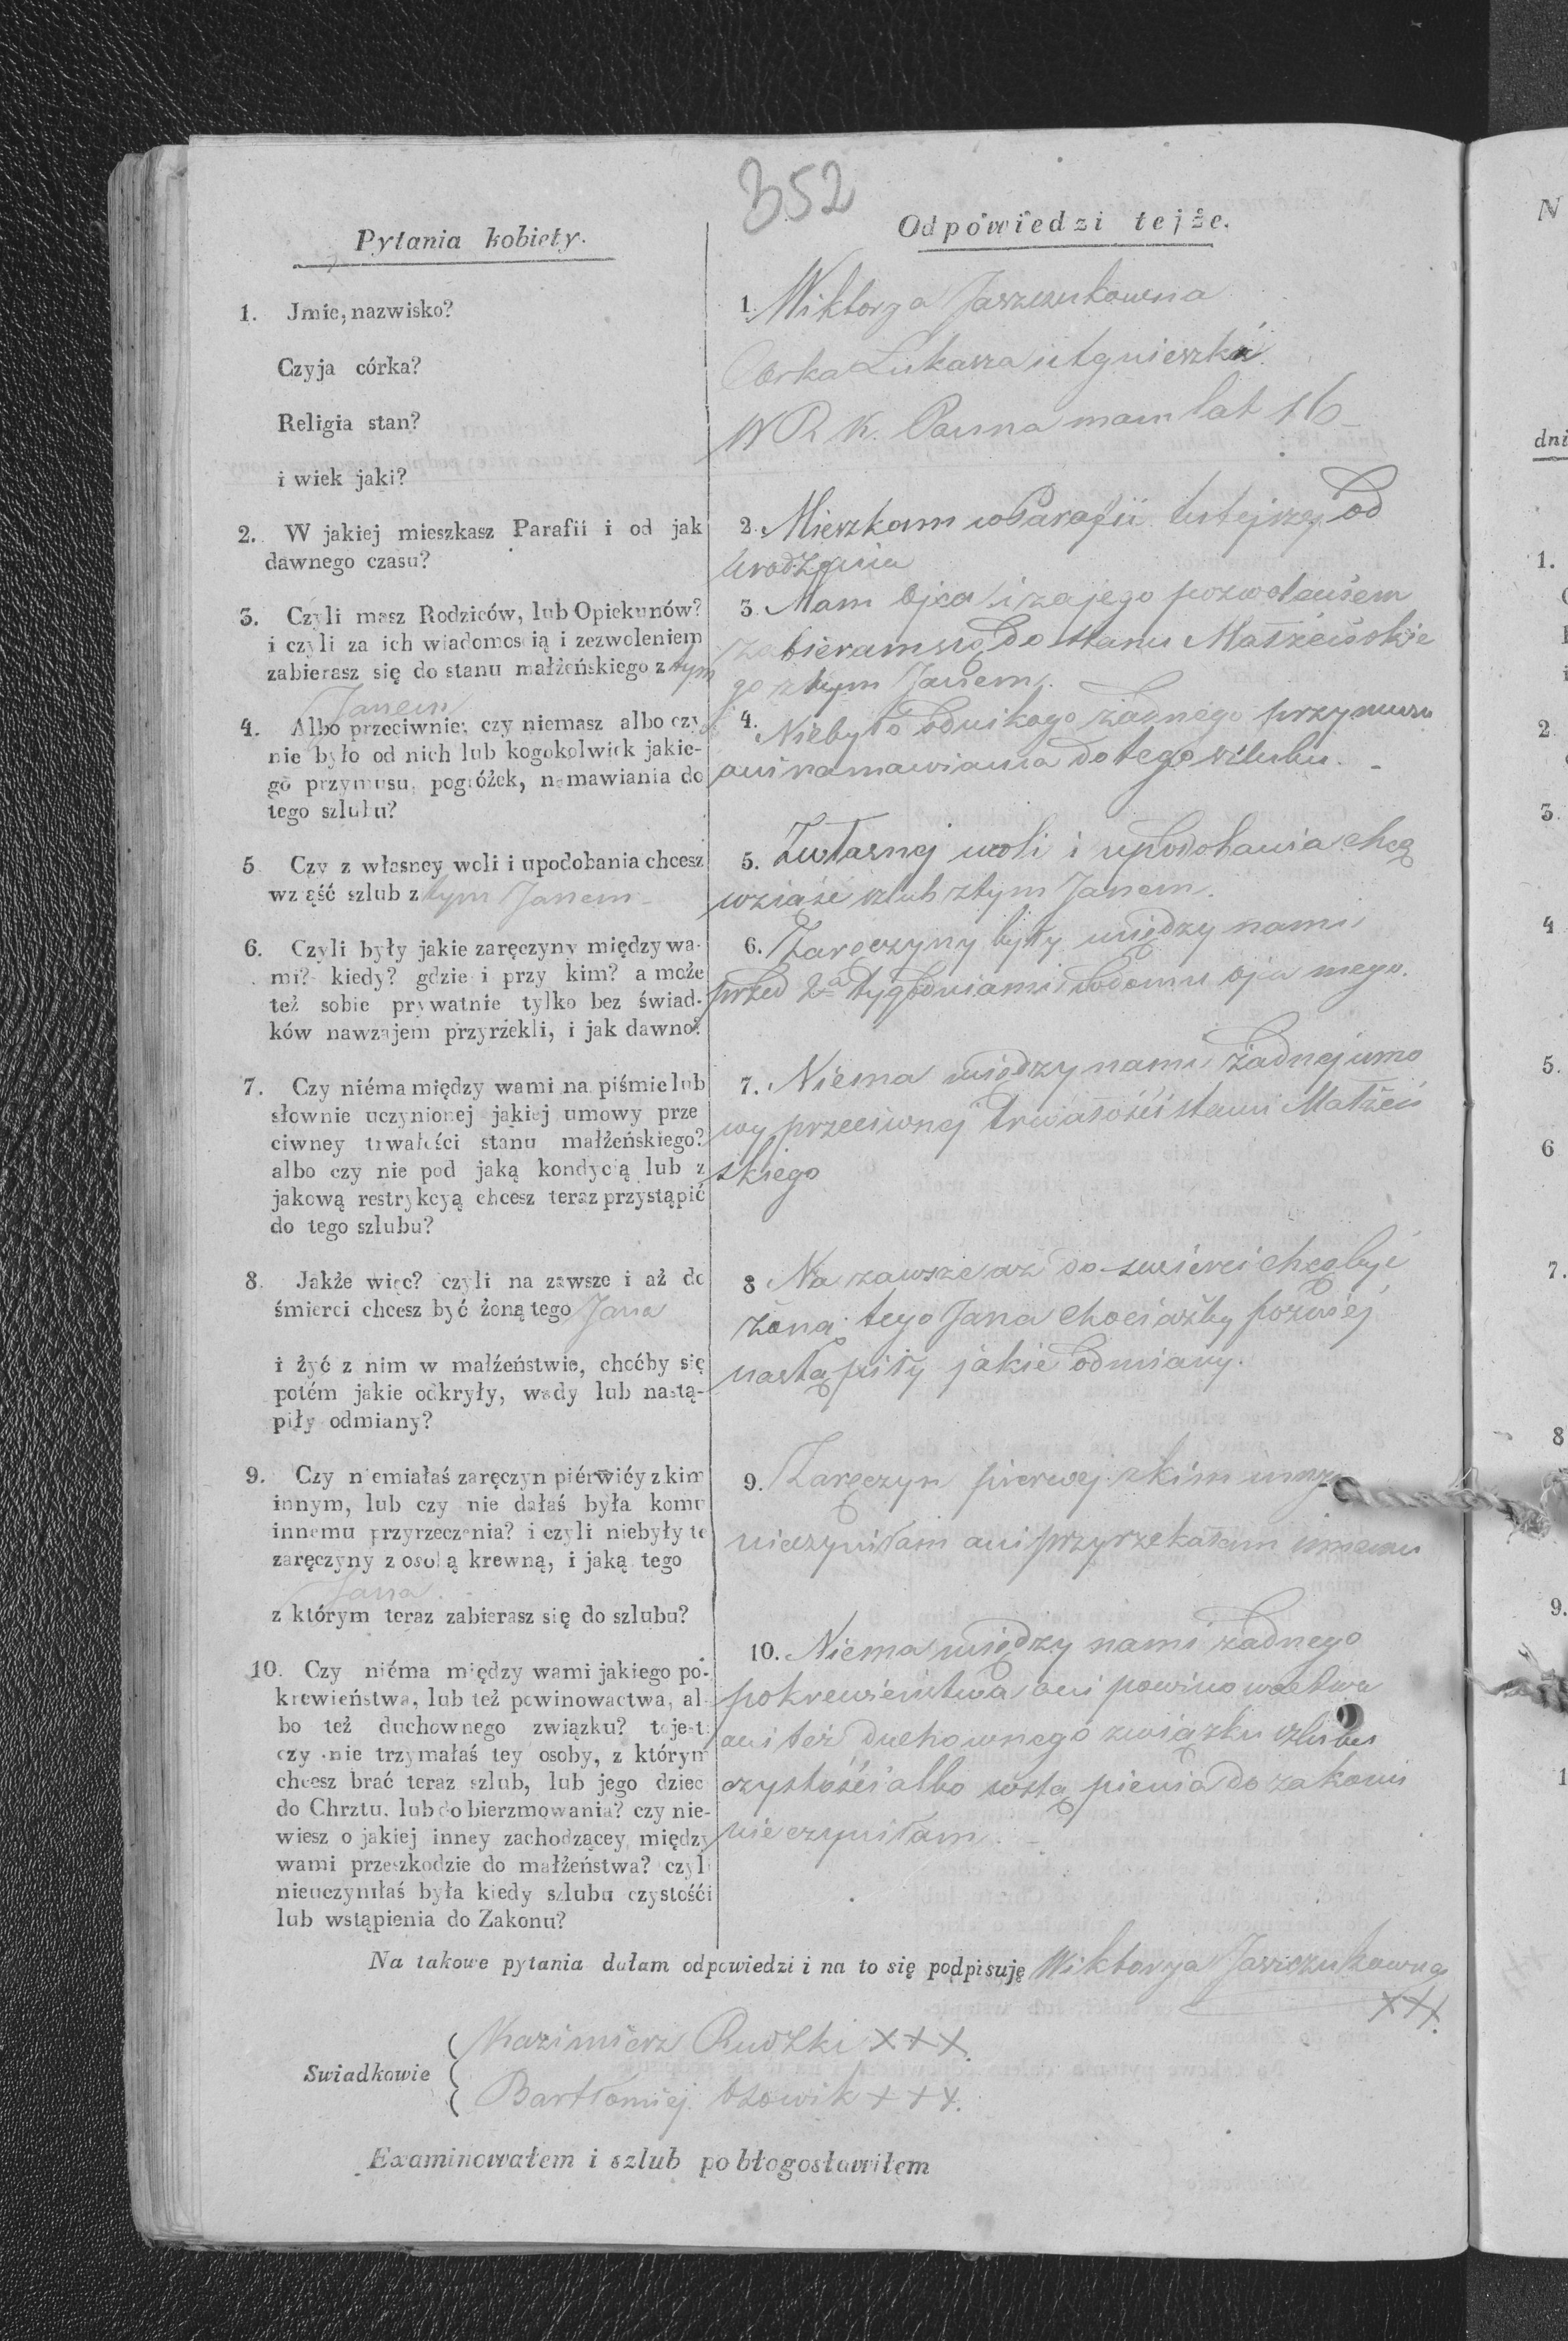 352
Pytania kobiety.
1. Jmie, nazwisko?
Czyja córka?
Religia stan?
i wiek jaki?
2. W jakiej mieszkasz Parafii i od jak
dawnego czasu?
3. Czyli masz Rodziców, lub Opiekunów?
i czyli za ich wiadomością i zezwoleniem
zabierasz się do stanu małżeńskiego z tym
Janem
4. Albo przeciwnie; czy niemasz albo czy
nie było od nich lub kogokolwiek jakie-
go przymusu, pogróżek, namawiania do
tego szlubu?
5 Czy z własney woli i upodobania chcesz
wziąść szlub z tym Janem
6. Czyli były jakie zaręczyny między wa-
mi? kiedy? gdzie i przy kim? a może
też sobie prywatnie tylko bez świad-
ków nawzajem przyrzekli, i jak dawno?
7. Czy niéma między wami na piśmie lub
słownie uczynionej jakiej umowy prze
ciwney trwałości stanu małżeńskiego?
albo czy nie pod jaką kondycią lub z
jakową restrykcyą chcesz teraz przystąpić
do tego szlubu?
8. Jakże więc? czyli na zawsze i aż do
śmierci chcesz być żoną tego Jana
i żyć z nim w małżeństwie, choćby się
potém jakie odkryły, wady lub nastą-
piły odmiany?
9. Czy niemiałaś zaręczyn piérwiéy z kim
innym, lub czy nie dałaś była komu
innemu przyrzeczenia? i czyli niebyły te
zaręczyny z osobą krewną, i jaką tego
Jana.
z którym teraz zabierasz się do szlubu?
10. Czy niéma między wami jakiego po-
krewieństwa, lub też powinowactwa, al-
bo też duchownego związku? to jest:
czy nie trzymałaś tey osoby, z którym
chcesz brać teraz szlub, lub jego dziec
do Chrztu, lub do bierzmowania? czy nie-
wiesz o jakiej inney zachodzącey między
wami przeszkodzie do małżeństwa? czyli
nieuczyniłaś była kiedy szlubu czystośći
lub wstąpienia do Zakonu?
Odpowiedzi tejże.
1. Wiktorya Jaszczukowna
Corka Łukasza i Agnieszki
W R K. Panna mam lat 16
2. Mieszkam w Parafii tutejszej od
urodzenia
3. Mam Ojca i za jego pozwolaniem
zabieram się do stanu Małżeńskie
go z tym Janem.
4. Niebyło od nikogo żadnego przymusu
ani namawiania do tego szlubu.
5. Z własnej woli i upodobania chcę
wziąść szlub z tym Janem.
6. Zaręczyny były między nami
przed 2a tygodniami w domu ojca mego.
7. Niema między nami żadnej umo
wy przeciwnej trwałości stanu Małżeń
skiego
8 Na zawsze aż do smierci chcę być
żoną tego Jana chociażby pożniej
nastąpiły jakie odmiany.
9. Zaręczyn pierwej z kim innym
nieczyniłam ani przyrzekałam innemu
10. Niema między nami żadnego
pokrewieństwa ani powinowactwa
ani też duchownego związku szlubu
czystości albo wstąpienia do zakonu
nie czyniłam.
Na takowe pytania dałam odpowiedzi i na to się podpisuję Wiktorya Jaszczukowna
XXX.
Swiadkowie
Kazimierz Rudzki XXX.
Bartłomiej XXX.
Examinowałem i szlub pobłogosławiłem
N
dni
1.
2.
3.
4
5.
6
7.
8
9.
1